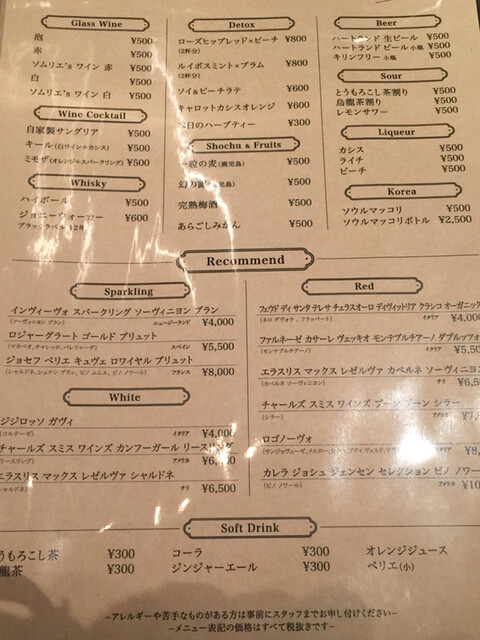 Glass Wine
泡 ¥500
赤 ¥500
ソムリエ's ワイン 赤 ¥500
白 ¥500
ソムリエ's ワイン 白 ¥500
Wine Cocktail
自家製サングリア ¥500
キール(白ワイン+カシス) ¥500
ミモザ(オレンジ+スパークリング) ¥500
Whisky
ハイボール ¥500
ジョニーウォーカー ¥600
ブラックラベル 12年
Detox
ローズヒップレッド×ピーチ ¥800
(2杯分)
ルイボスミント×プラム ¥800
(2杯分)
ソイ&ピーチラテ ¥600
キャロットカシスオレンジ ¥600
本日のハーブティー ¥300
Shochu & Fruits
一粒の麦(鹿児島) ¥500
幻の ¥500
完熟梅酒 ¥500
あらごしみかん ¥500
Beer
ハートランド 生ビール ¥500
ハートランド ビール 小瓶 ¥500
キリンフリー 小瓶 ¥500
Sour
とうもろこし茶割り ¥500
烏龍茶割り ¥500
レモンサワー ¥500
Liqueur
カシス ¥500
ライチ ¥500
ピーチ ¥500
Korea
ソウルマッコリ ¥500
ソウルマッコリボトル ¥2,500
Recommend
Sparkling
インヴィーヴォ スパークリング ソーヴィニヨン ブラン
(ソーヴィニヨン ブラン) ニュージーランド ¥4,000
ロジャーグラート ゴールド ブリュット
(マカベオ, チャレッロ, パレリャーダ) スペイン ¥5,500
ジョセフ ペリエ キュヴェ ロワイヤル ブリュット
(シャルドネ, シュナン ブラン, ピノ ムニエ, ピノ ノワール) フランス ¥8,000
White
ジジロッソ ガヴィ
(コルテーゼ) イタリア ¥4,000
チャールズ スミス ワインズ カンフーガール リースリング
リースリング) アメリカ
エラスリス マックス レゼルヴァ シャルドネ
シャルドネ) チリ ¥6,500
Red
フェウド ディ サンタ テレサ チェラスオーロ ディ ヴィットリア クラシコ オーガニック
(ネロ ダヴォラ, フラッパート) イタリア ¥4,000
ファルネーゼ カサーレ ヴェッキオ モンテプルチアーノ ダブルッツォ
(モンテプルチアーノ) イタリア ¥5,50
エラスリス マックス レゼルヴァ カベルネ ソーヴィニヨン
(カベルネ ソーヴィニヨン) チリ ¥6,5
チャールズ スミス ワインズ ブーン ブーン シラー
(シラー) アメリカ ¥7,
ロゴノーヴォ
イタリア ¥8,
カレラ ジョシュ ジェンセン セレクション ピノ ノワー
(ピノ ノワール) アメリカ ¥10
Soft Drink
うもろこし茶 ¥300
龍茶 ¥300
コーラ ¥300
ジンジャーエール ¥300
オレンジジュース
ペリエ(小)
–アレルギーや苦手なものがある方は事前にスタッフまでお申し付けください–
–メニュー表記の価格はすべて税抜きです–